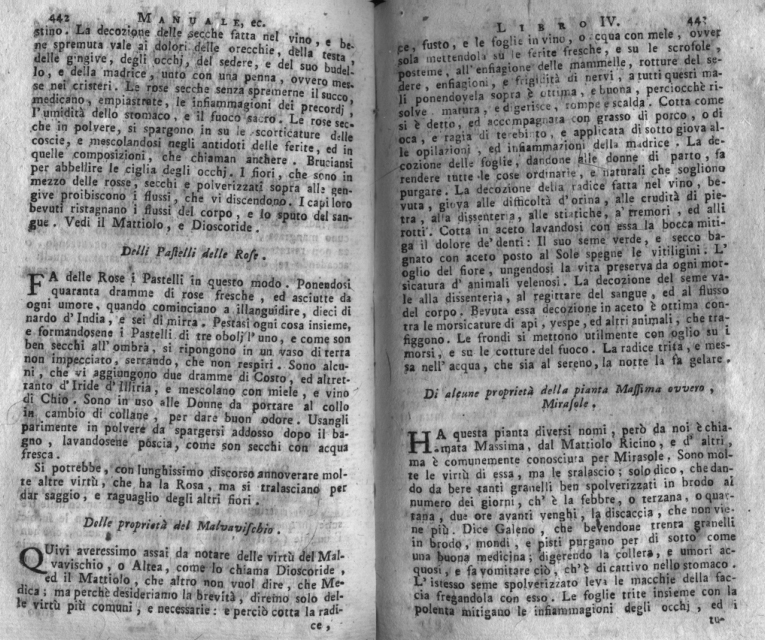 442 MANUALE, ec.
stino. La decozione delle secche fatta nel vino, e be-
ne spremuta vale ai dolori delle orecchie, della testa,
delle gingive, degli occhj, del sedere, e del suo budel-
lo, e della madrice, unto con una penna, ovvero mes-
se nei cristeri. Le rose secche senza spremerne il succo,
medicano, empiastrate, le infiammagioni dei precordj,
l'umidità dello stomaco, e il fuoco sacro. Le rose sec-
che in polvere, si spargono in su le scorticature delle
coscie, e mescolandosi negli antidoti delle ferite, ed in
quelle composizioni, che chiaman anchere. Bruciansi
per abbellire le ciglia degli occhj. I fiori, che sono in
mezzo delle rosse, secchi e polverizzati sopra alle gen-
give proibiscono i flussi, che vi discendono. I capi loro
bevuti ristagnano i flussi del corpo, e lo sputo del san-
gue. Vedi il Mattiolo, e Dioscoride.
Delli Pastelli delle Rose.
FA delle Rose i Pastelli in questo modo. Ponendosi
quaranta dramme di rose fresche, ed asciutte da
ogni umore, quando cominciano a illanguidire, dieci di
nardo d'India, e sei di mirra. Pestasi ogni cosa insieme,
e formandosene i Pastelli di tre oboli l'uno, e come son
ben secchi all'ombra, si ripongono in un vaso di terra
non impecciato, serrando, che non respiri. Sono alcu-
ni, che vi aggiungono due dramme di Costo, ed altret-
tanto d'Iride d'Illiria, e mescolano con miele, e vino
di Chio. Sono in uso alle Donne da portare al collo
in cambio di collane, per dare buon odore. Usangli
parimente in polvere da spargersi addosso dopo il ba-
gno, lavandosene poscia, come son secchi con acqua
fresca.
Si potrebbe, con lunghissimo discorso annoverare mol-
te altre virtù, che ha la Rosa, ma si tralasciano per
dar saggio, e raguaglio degli altri fiori.
Delle proprietà del Malvavischio.
QUivi averessimo assai da notare delle virtù del Mal-
vavischio, o Altea, come lo chiama Dioscoride,
ed il Mattiolo, che altro non vuol dire, che Me-
dica; ma perchè desideriamo la brevità, diremo solo del-
le virtù più comuni, e necessarie: e perciò cotta la radi-
ce,
LIBRO IV. 443
ce, fusto, e le foglie in vino, o acqua con mele, ovver
sola mettendola su le ferite fresche, e su le scrofole,
posteme, all'enfiagione delle mammelle, rotture del se-
dere, enfiagioni, e frigidità di nervi, a tutti questi ma-
li ponendovela sopra è ottima, e buona, perciocchè ri-
solve, matura, e digerisce, rompe e scalda. Cotta come
si è detto, ed accompagnata con grasso di porco, o di
oca, e ragia di terebinto, e applicata di sotto giova al-
le opilazioni, ed infiammazioni della madrice. La de-
cozione delle foglie, dandone alle donne di parto, fa
rendere tutte le cose ordinarie, e naturali che sogliono
purgare. La decozione della radice fatta nel vino, be-
vuta, giova alle difficoltà d'orina, alle crudità di pie-
tra, alla dissenteria, alle stitiche, a'tremori, ed alli
rotti. Cotta in aceto lavandosi con essa la bocca miti-
ga il dolore de'denti: Il suo seme verde, e secco ba-
gnato con aceto posto al Sole spegne le vitiligini. L'
oglio del fiore, ungendosi la vita preserva da ogni mor-
sicatura d'animali velenosi. La decozione del seme va-
le alla dissenteria, al regittare del sangue, ed al flusso
del corpo. Bevuta essa decozione in aceto è ottima con-
tra le morsicature di api, vespe, ed altri animali, che tra-
figgono. Le frondi si mettono utilmente con oglio su i
morsi, e su le cotture del fuoco. La radice trita, e mes-
sa nell'acqua, che sia al sereno, la notte la fa gelare.
Di alcune proprietà della pianta Massima ovvero,
Mirasole.
HA questa pianta diversi nomi, però da noi è chia-
mata Massima, dal Mattiolo Ricino, e d'altri,
ma è comunemente conosciuta per Mirasole. Sono mol-
te le virtù di essa, ma le sralascio; solo dico, che dan-
do da bere tanti granelli ben spolverizzati in brodo al
numero dei giorni, ch'è la febbre, o terzana, o quar-
tana, due ore avanti venghi, la discaccia, che non vie-
ne più. Dice Galeno, che bevendone trenta granelli
in brodo, mondi, e pisti purgano per di sotto come
una buona medicina; digerendo la collera, e umori ac-
quosi, e fa vomitare ciò, ch'è di cattivo nello stomaco.
L'istesso seme spolverizzato leva le macchie della fac-
cia fregandola con esso. Le foglie trite insieme con la
polenta mitigano le infiammagioni degli occhj, ed i
tu-